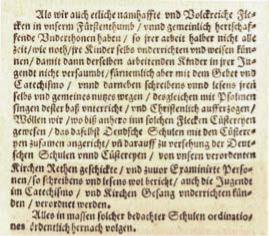 Als wir auch etliche namhaffte vnd Volckreiche Fle-
cken in vnserm Fürstenthumb / vnnd gemeinlich hertschaf-
fende Vnderthonen haben / so jrer arbeit halber nicht alle
zeit / wie noth / jre Kinder selbs vnderrichten vnd weisen kün-
nen / damit dann derselben arbeitenden Kinder in jrer Ju-
gendt nicht versaumbt / fürnemlich aber mit dem Gebet vnd
Catechismo / vnnd darneben schreibens vnnd lesens jrer
selbs vnd gemeines nutzes wegen / desgleichen mit Psalmen
singen dester baß vnterricht / vnd Christenlich aufferzogen /
Wöllen wir / wo biß anhero inn solchen Flecken Cüstereyen
gewesen / das daselbst Deudsche Schulen mit den Cüster-
eyen zusamen angericht / vn̄ darauff zu versehung der Deut-
schen Schulen vnnd Cüstereyen / von vnsern verordenten
Kirchen Rethen geschickte / vnd zuuor Examinirte Perso-
nen / so schreibens vnd lesens wol bericht / auch die Jugend
im Catechismo / vnd Kirchen Gesang vnterrichten kün-
den / verordnet werden.
Alles in massen solcher bedachter Schulen ordinatio-
nes ördentlich hernach volgen.